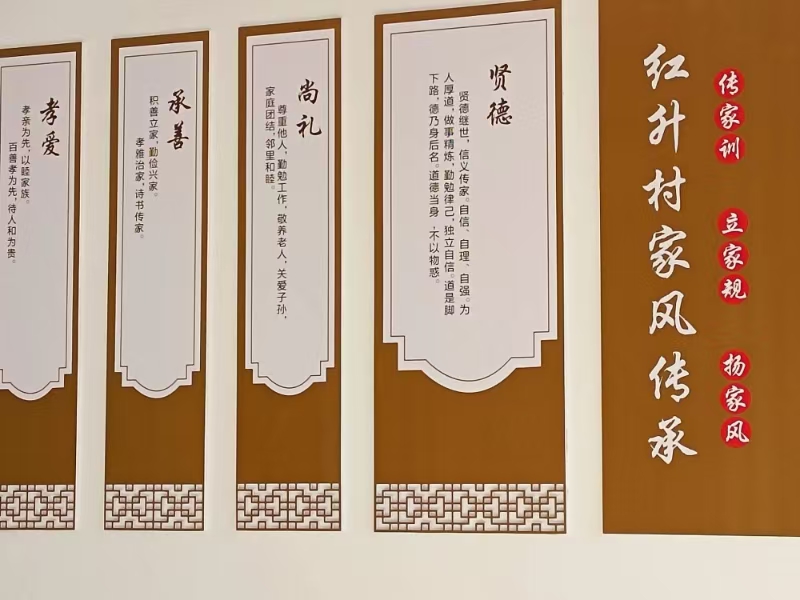 传家训 立家规 扬家风
红升村家风传承
贤德
贤德继世，信义传家。自信、自理、自强。为
人厚道，做事精炼，勤勉律己，独立自信。道是脚
下路，德乃身后名。道德当身，不以物惑。
尚礼
尊重他人，勤勉工作，敬养老人，关爱子孙，
家庭团结，邻里和睦。
承善
积善立家，勤俭兴家。
孝雅治家，诗书传家。
孝爱
孝亲为先，以睦家族。
百善孝为先，待人和为贵。